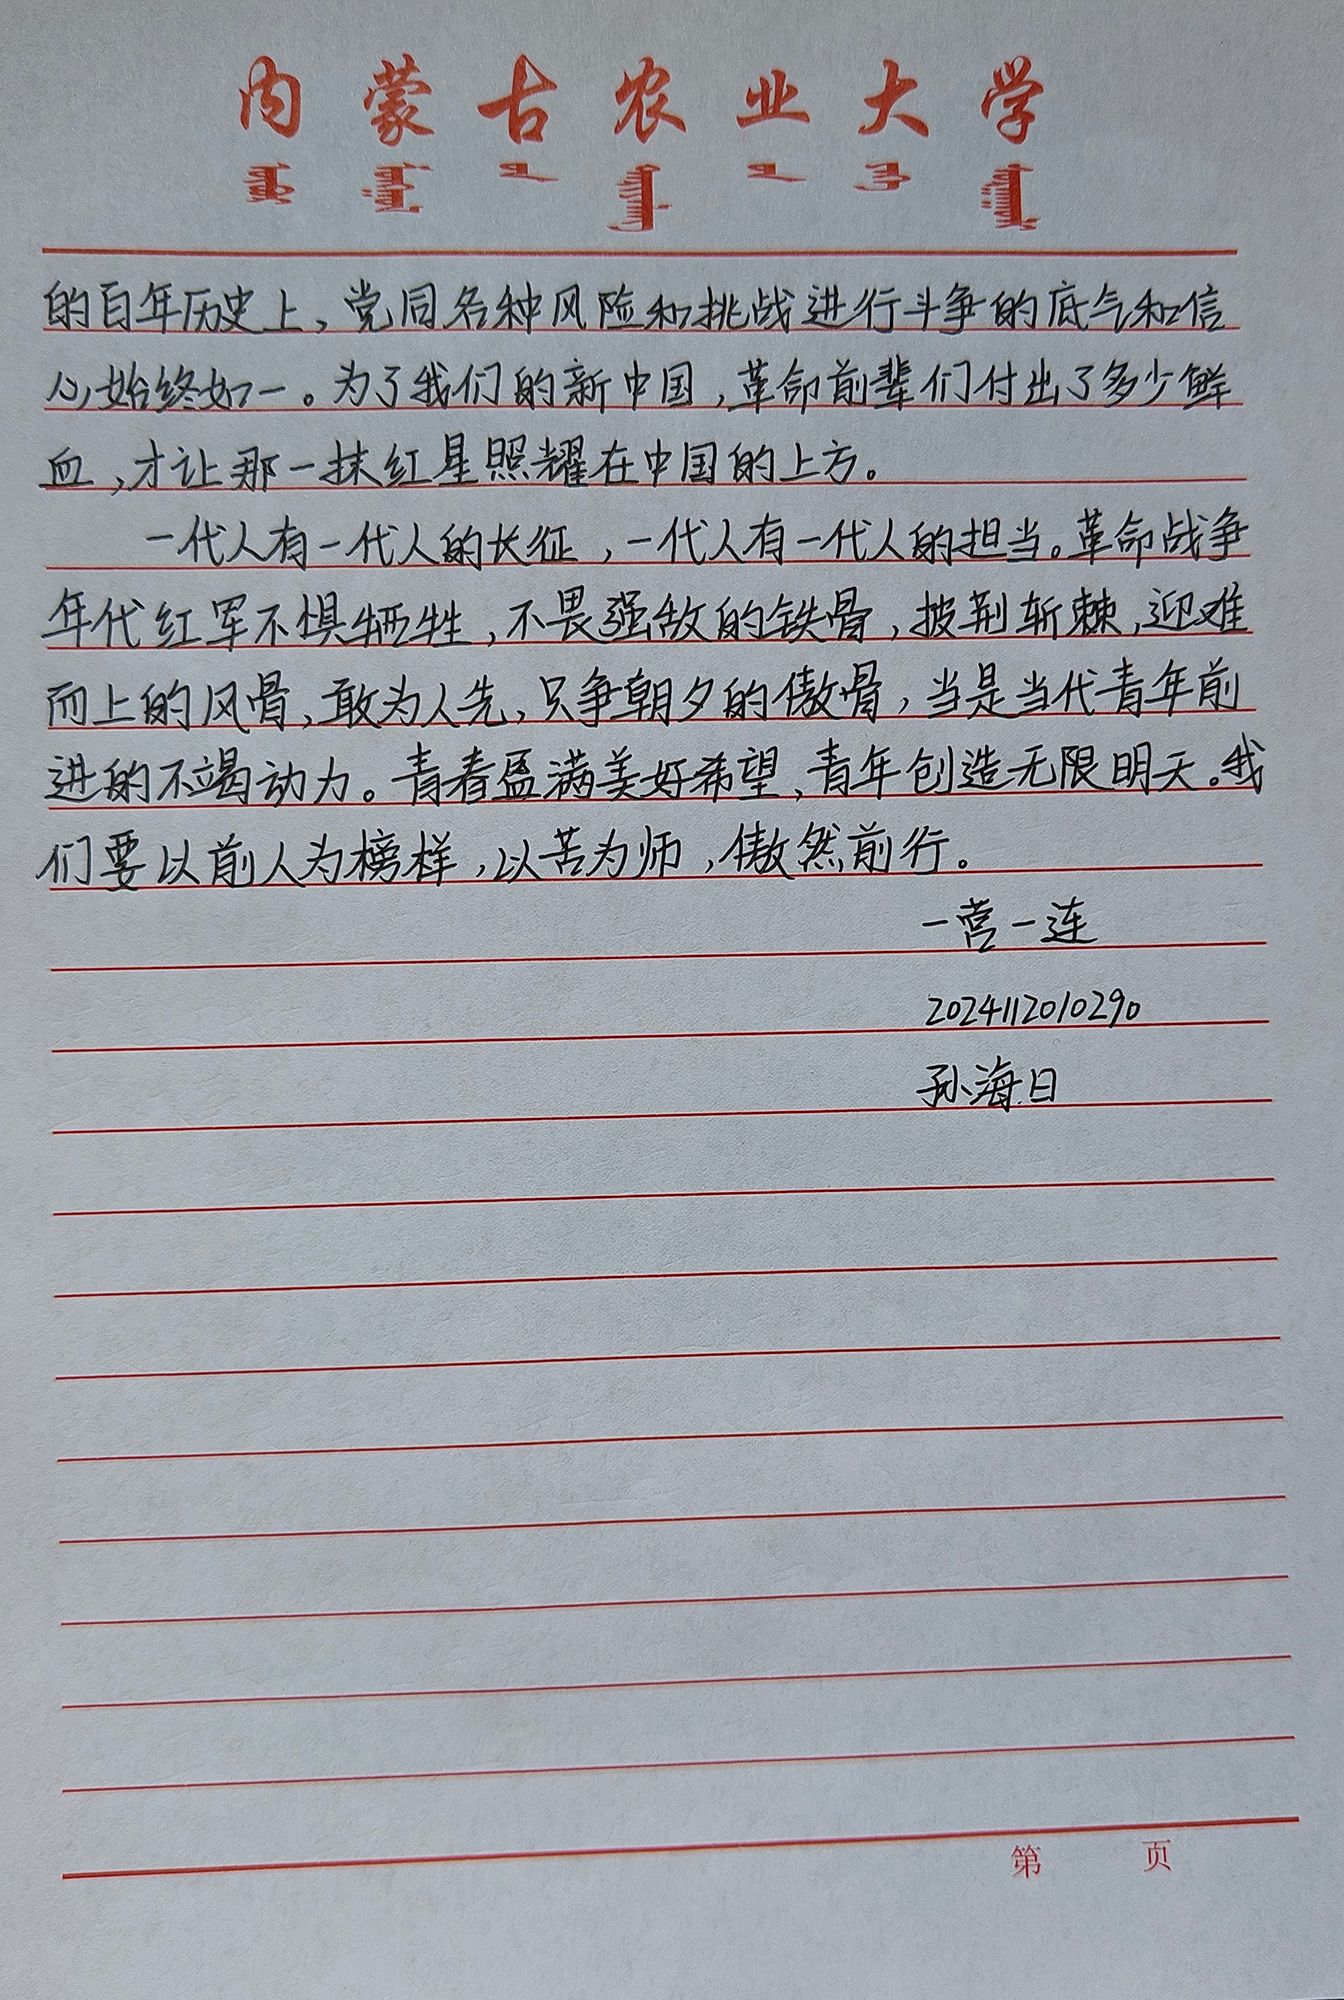 内蒙古农业大学
的百年历史上，党同各种风险和挑战进行斗争的底气和信
心始终如一。为了我们的新中国，革命前辈们付出了多少鲜
血，才让那一抹红星照耀在中国的上方。
一代人有一代人的长征，一代人有一代人的担当。革命战争
年代红军不惧牺牲，不畏强敌的铁骨，披荆斩棘，迎难
而上的风骨，敢为人先，只争朝夕的傲骨，当是当代青年前
进的不竭动力。青春盈满美好希望，青年创造无限明天。我
们要以前人为榜样，以苦为师，傲然前行。
一营一连
2024112010290
孙海日
第 页